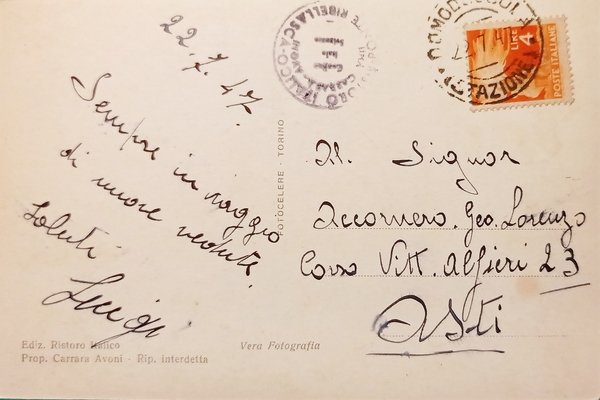 22.7.47.
Sempre in viaggio
di nuove vedute.
Saluti
Luigi
RISTORO ITALICO
PONTE RIBELLASCA
CARRARA AVONI
DOMODOSSOLA
STAZIONE
LIRE 4
POSTE ITALIANE
FOTOCELERE - TORINO
Al Signor
Accornero Geo. Lorenzo
Corso Vitt. Alfieri 23
Asti
Ediz. Ristoro Italico
Prop. Carrara Avoni - Rip. interdetta
Vera Fotografia